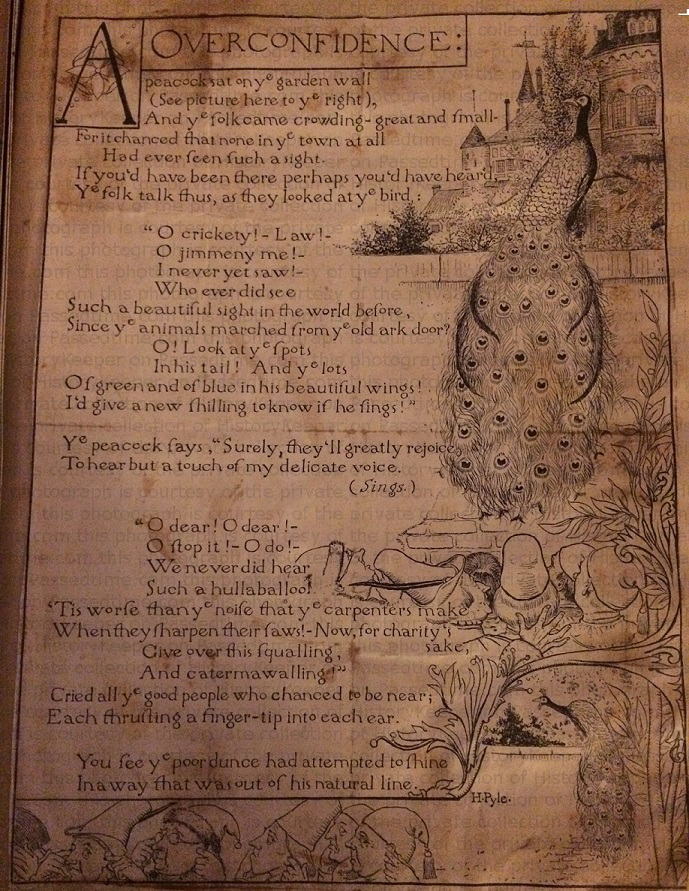 OVERCONFIDENCE:
A peacock sat on yᵉ garden wall
(See picture here to yᵉ right),
And yᵉ ſolk came crowding- great and ſmall-
For it chanced that none in yᵉ town at all
Had ever ſeen ſuch a sight.
If you'd have been there perhaps you'd have heard
Yᵉ folk talk thus, as they looked at yᵉ bird,:
"O crickety!- Law!-
O jimmeny me!-
I never yet saw!-
Who ever did see
Such a beautiful sight in the world before,
Since yᵉ animals marched from yᵉ old ark door?
O! Look at yᵉ ſpots
In his tail! And yᵉ lots
Of green and of blue in his beautiful wings!
I'd give a new ſhilling to know if he ſings!"
Yᵉ peacock ſays, "Surely, they'll greatly rejoice
To hear but a touch of my delicate voice.
(Sings.)
"O dear! O dear!-
O ſtop it!- O do!-
We never did hear
Such a hullaballoo!
'Tis worſe than yᵉ noiſe that yᵉ carpenters make
When they ſharpen their ſaws!- Now, for charity's sake,
Give over this ſqualling,
And catermawalling!"
Cried all yᵉ good people who chanced to be near;
Each thruſting a finger-tip into each ear.
You ſee yᵉ poor dunce had attempted to ſhine
In a way that was out of his natural line.
H. Pyle.